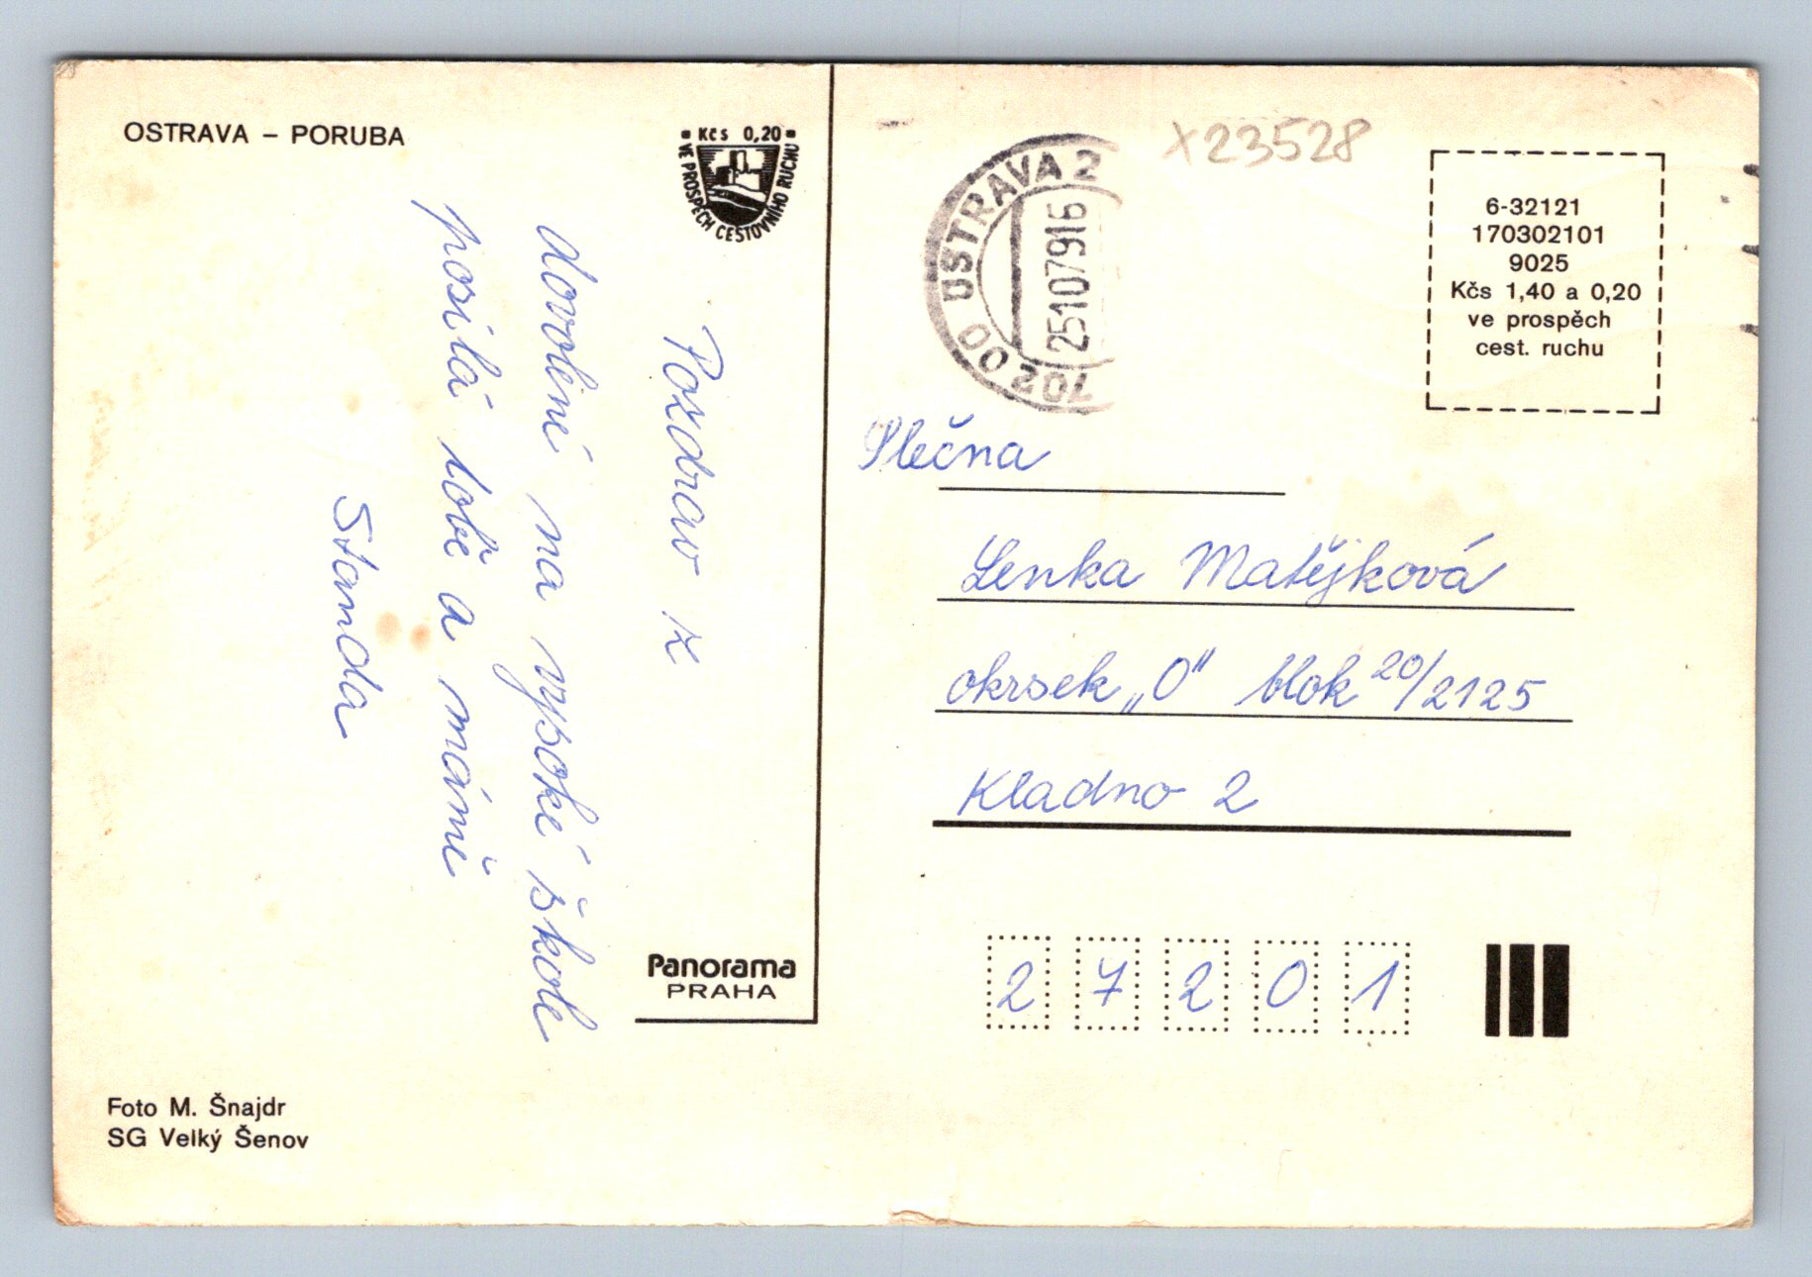 OSTRAVA – PORUBA
Kčs 0,20
VE PROSPĚCH CESTOVNÍHO RUCHU
Pozdrav z
dovolení na vysoké škole
posílá tobě a mámě
Standa
Panorama
PRAHA
Foto M. Šnajdr
SG Velký Šenov
702 00 OSTRAVA 2
25107916
X23528
6-32121
170302101
9025
Kčs 1,40 a 0,20
ve prospěch
cest. ruchu
Slečna
Lenka Matějková
okrsek „0" blok 20/2125
Kladno 2
27201